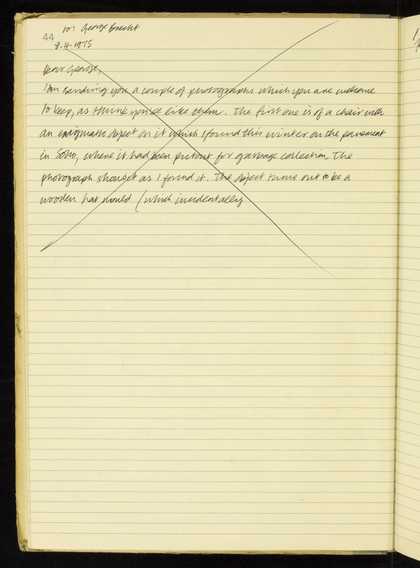 to: George Brecht
44
8-4-1975
Dear George,
I am sending you a couple of photographs which you are welcome
to keep, as I think you'll like them. The first one is of a chair with
an enigmatic object on it which I found this winter on the pavement
in Soho, where it had been put out for garbage collection. The
photograph shows it as I found it. The object turns out to be a
wooden hat mould (which incidentally